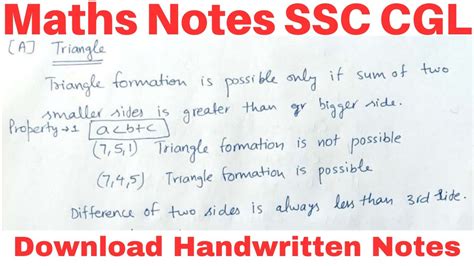 Maths Notes SSC CGL
[A] Triangle
Triangle formation is possible only if sum of two
smaller sides is greater than gr bigger side.
Property → 1 a<b+c
(7,5,1) Triangle formation is not possible
(7,4,5) Triangle formation is possible
Difference of two sides is always less than 3rd side.
Download Handwritten Notes